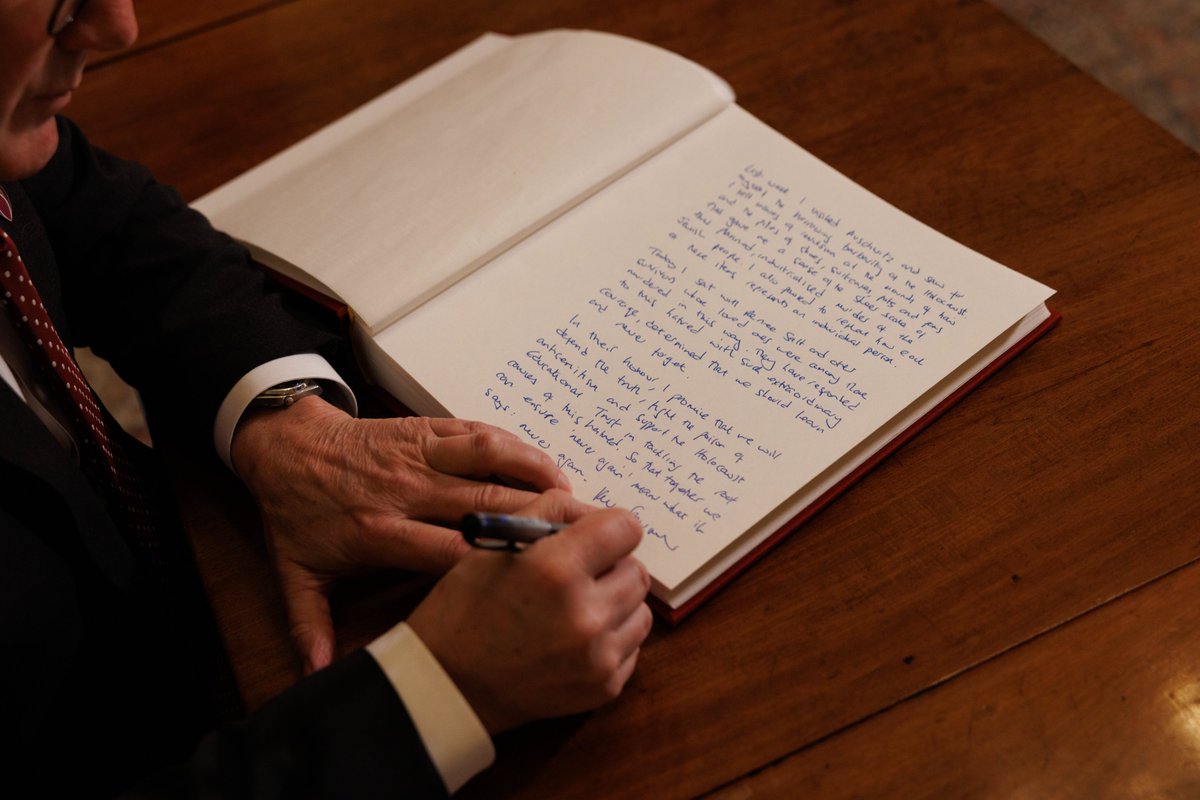 Last week I visited Auschwitz and saw for
myself the harrowing barbarity of the Holocaust
I will never of all the mounds of hair
and the piles of shoes, suitcases, pots and pans
that gave me a sense of the sheer scale of
this planned, industrialised murder of the
Jewish people. I also paused to reflect how each
a mere item represents an individual person.
Today I sat with Renee Salt and other
survivors whose loved ones were among those
murdered in this way. They have responded
to this hatred with such extraordinary
courage, determined that we should learn
and never forget.
In their honour, I promise that we will
defend the truth, fight the poison of
antisemitism and support the Holocaust
Educational Trust in tackling the root
causes of this hatred. So that together we
can ensure 'never again' means what it
says: never again.
Keir Starmer